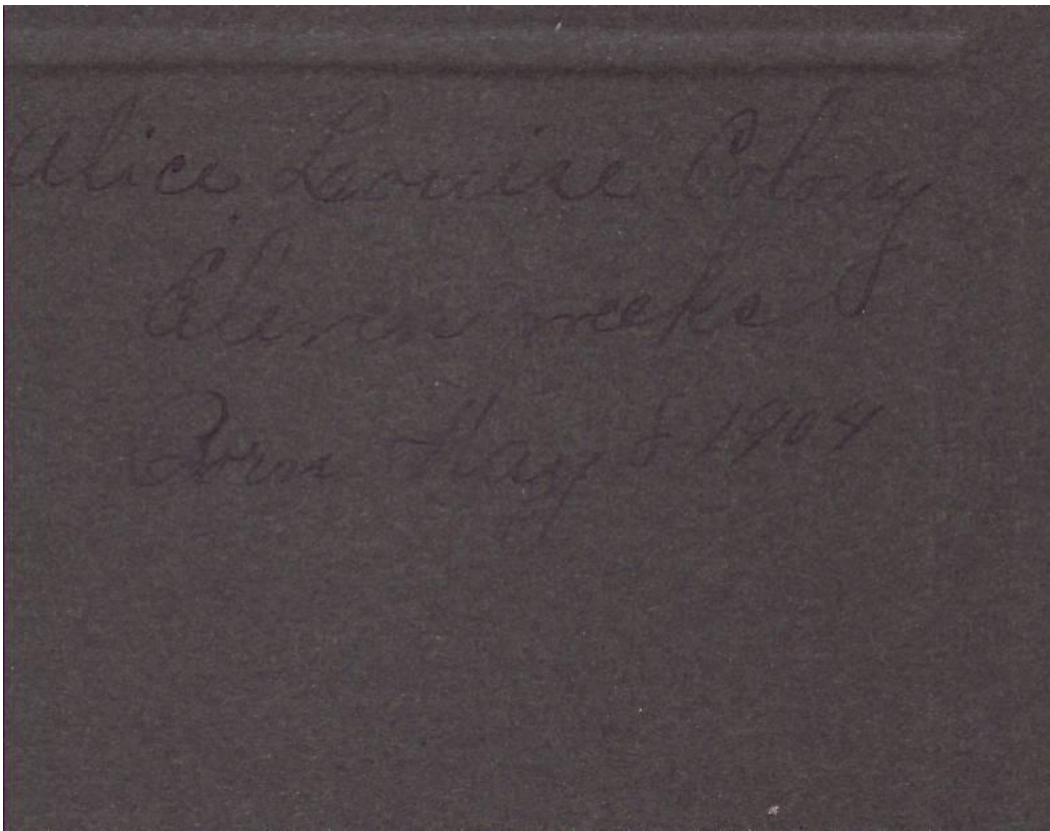 Alice Louise Colony
Eleven weeks
Born May 8 1904